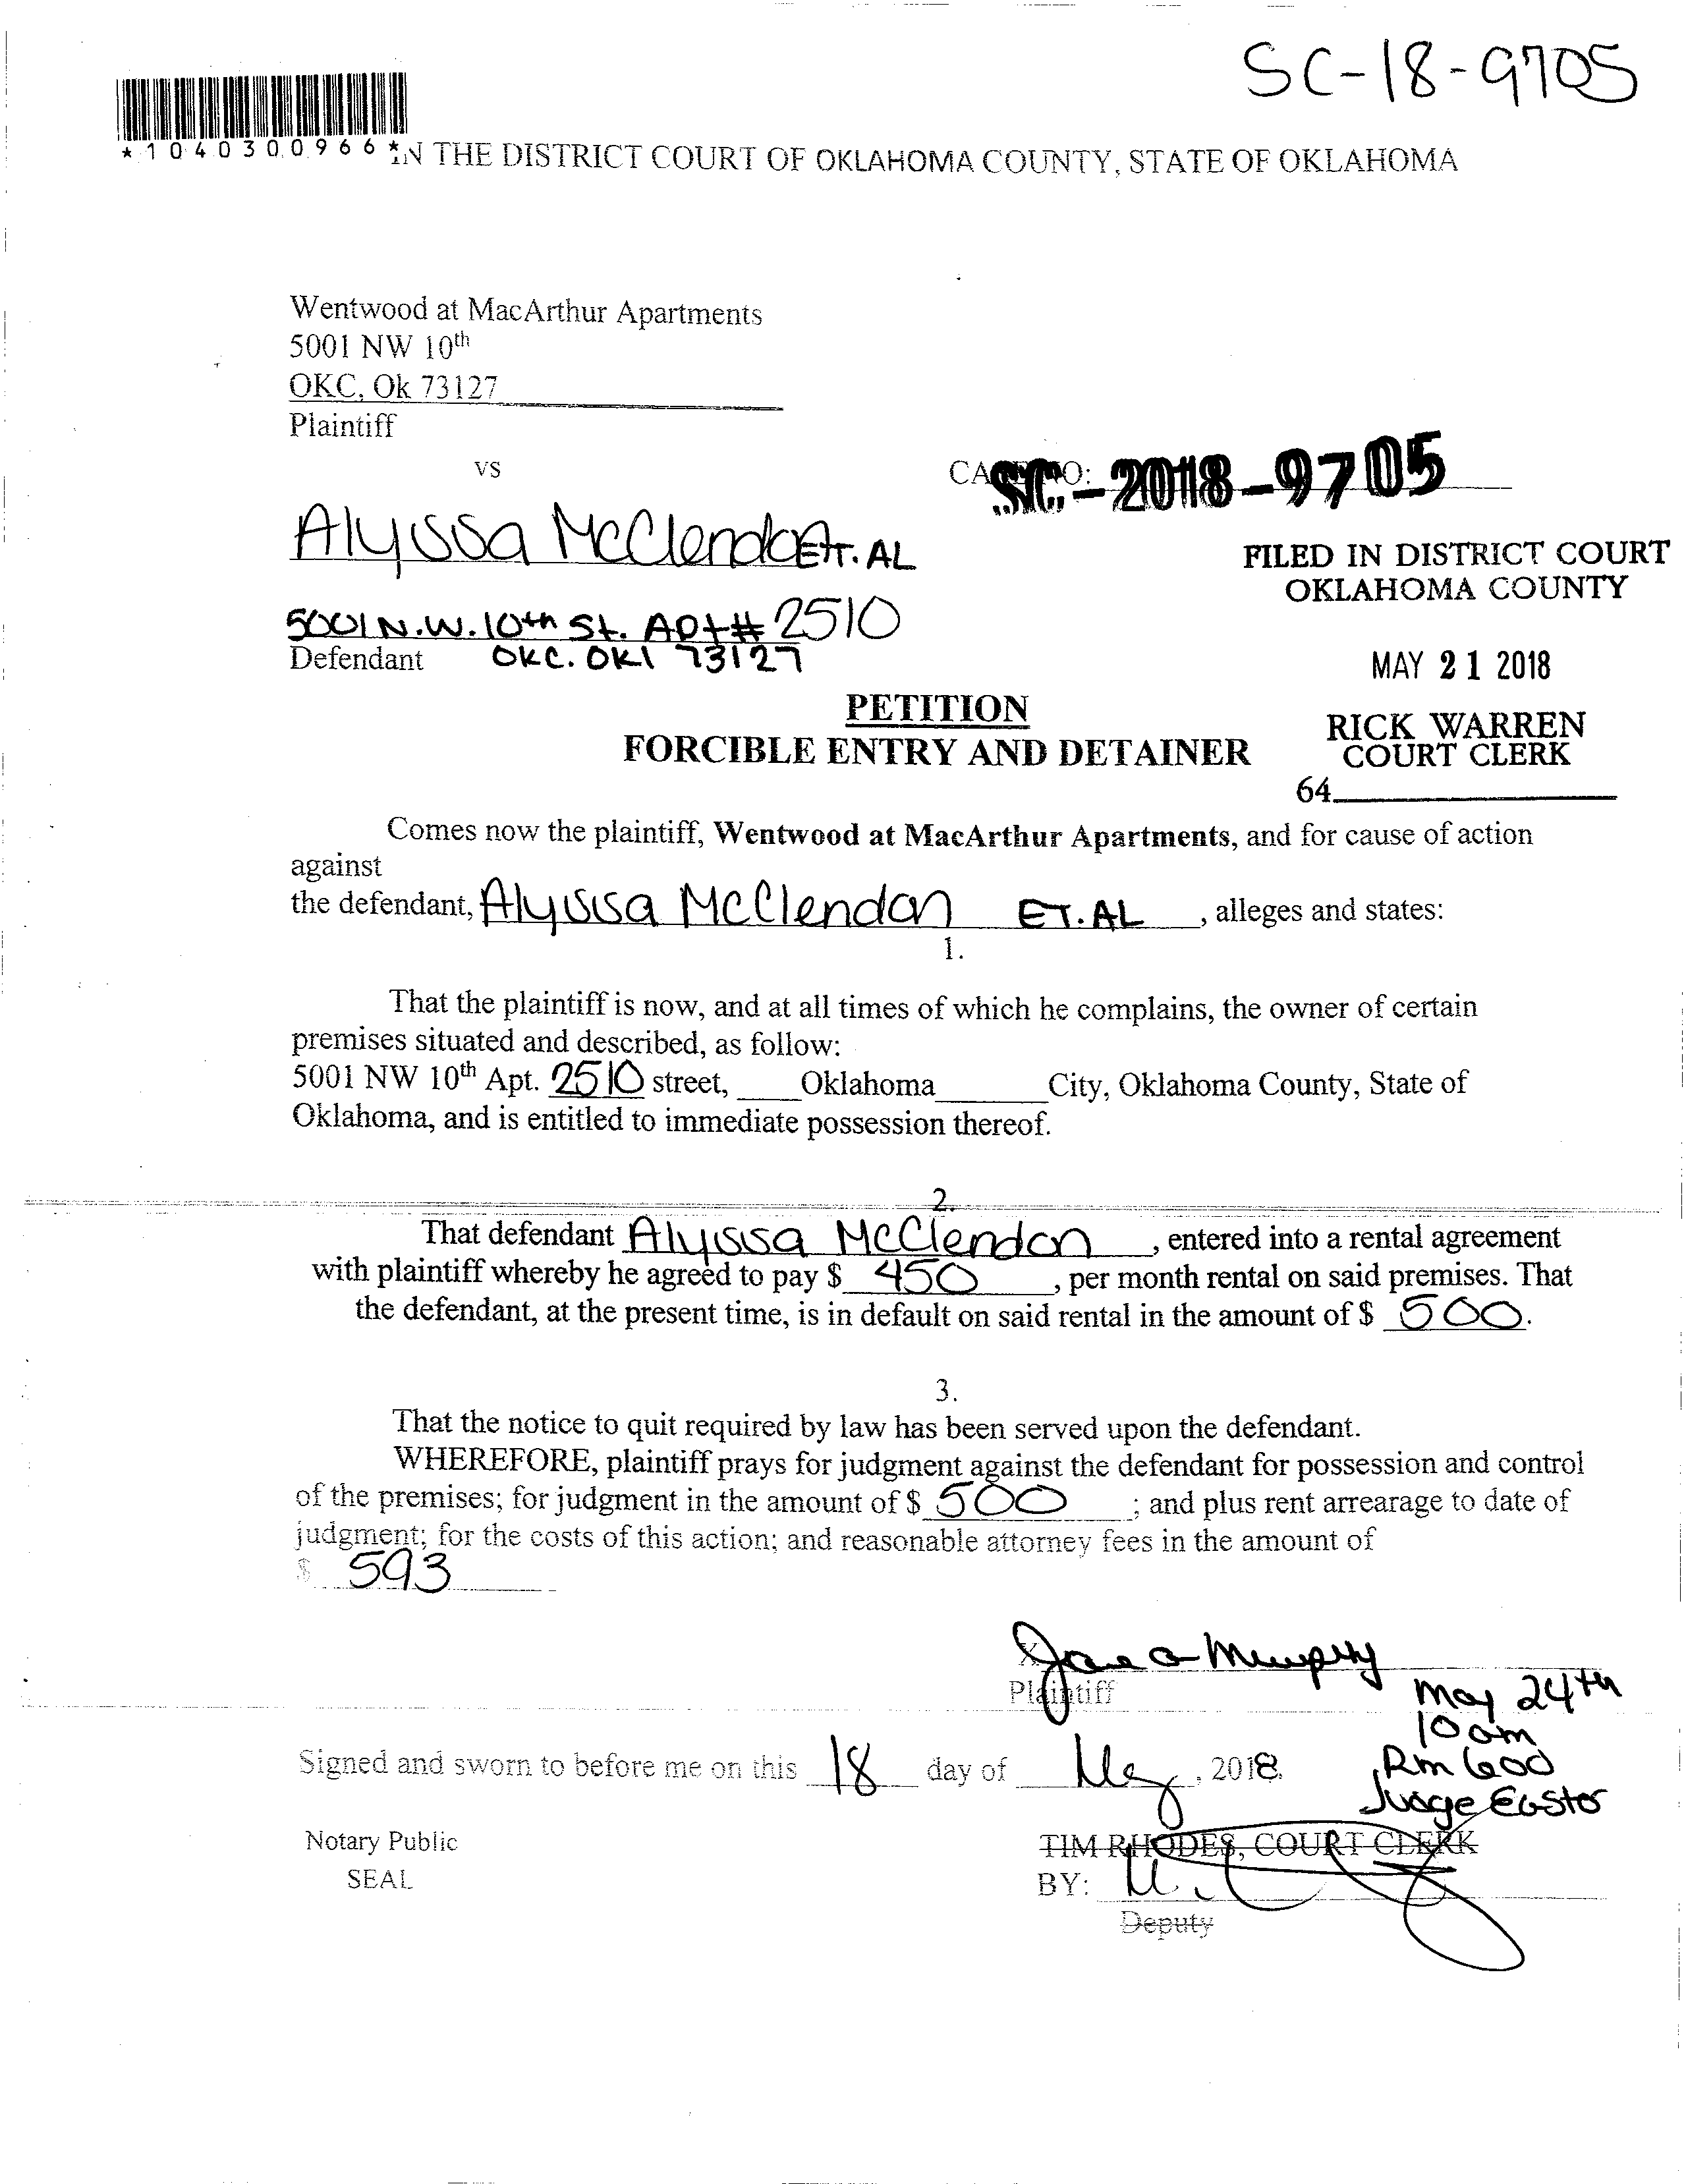 SC-18-9705
*1040300966*
IN THE DISTRICT COURT OF OKLAHOMA COUNTY, STATE OF OKLAHOMA
Wentwood at MacArthur Apartments
5001 NW 10th
OKC, Ok 73127
Plaintiff
vs
CASE NO:
SC-2018-9705
Alyssa McClendon ET.AL
FILED IN DISTRICT COURT
OKLAHOMA COUNTY
5001 N.W. 10th St. Apt# 2510
Defendant OKC. OKl 73127
MAY 21 2018
PETITION
RICK WARREN
FORCIBLE ENTRY AND DETAINER
COURT CLERK
64
Comes now the plaintiff, Wentwood at MacArthur Apartments, and for cause of action
against
the defendant, Alyssa McClendon ET.AL , alleges and states:
1.
That the plaintiff is now, and at all times of which he complains, the owner of certain
premises situated and described, as follow:
5001 NW 10th Apt. 2510 street, Oklahoma City, Oklahoma County, State of
Oklahoma, and is entitled to immediate possession thereof.
2.
That defendant Alyssa McClendon , entered into a rental agreement
with plaintiff whereby he agreed to pay $ 450 , per month rental on said premises. That
the defendant, at the present time, is in default on said rental in the amount of $ 500.
3.
That the notice to quit required by law has been served upon the defendant.
WHEREFORE, plaintiff prays for judgment against the defendant for possession and control
of the premises; for judgment in the amount of $ 500 ; and plus rent arrearage to date of
judgment; for the costs of this action; and reasonable attorney fees in the amount of
$ 593
X Murphy
Plaintiff
May 24th
10am
Rm 600
Judge Easter
Signed and sworn to before me on this 18 day of May, 2018.
Notary Public
SEAL
TIM RHODES, COURT CLERK
BY:
Deputy